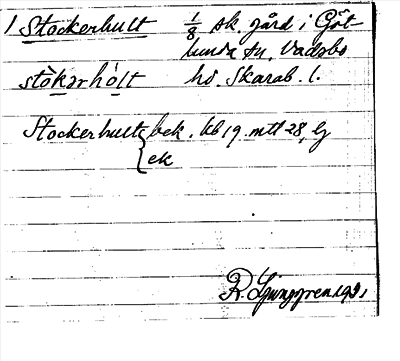 1 Stockerhult 1/8 sk. gård i Göt-
lunda sn, Vadsbo
stòkərhòlt hd. Skarab. l.
Stockerhult { bek. Kb 19. mtl 28, G
ek
R. Ljunggren 1921